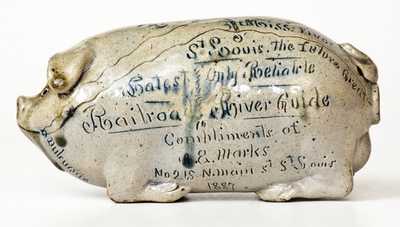 The Mississ
St Louis. The Future Great
Latest Only Reliable
Railroad & River Guide
Compliments of
& Marks
No 215 N. Main St St Louis
1887